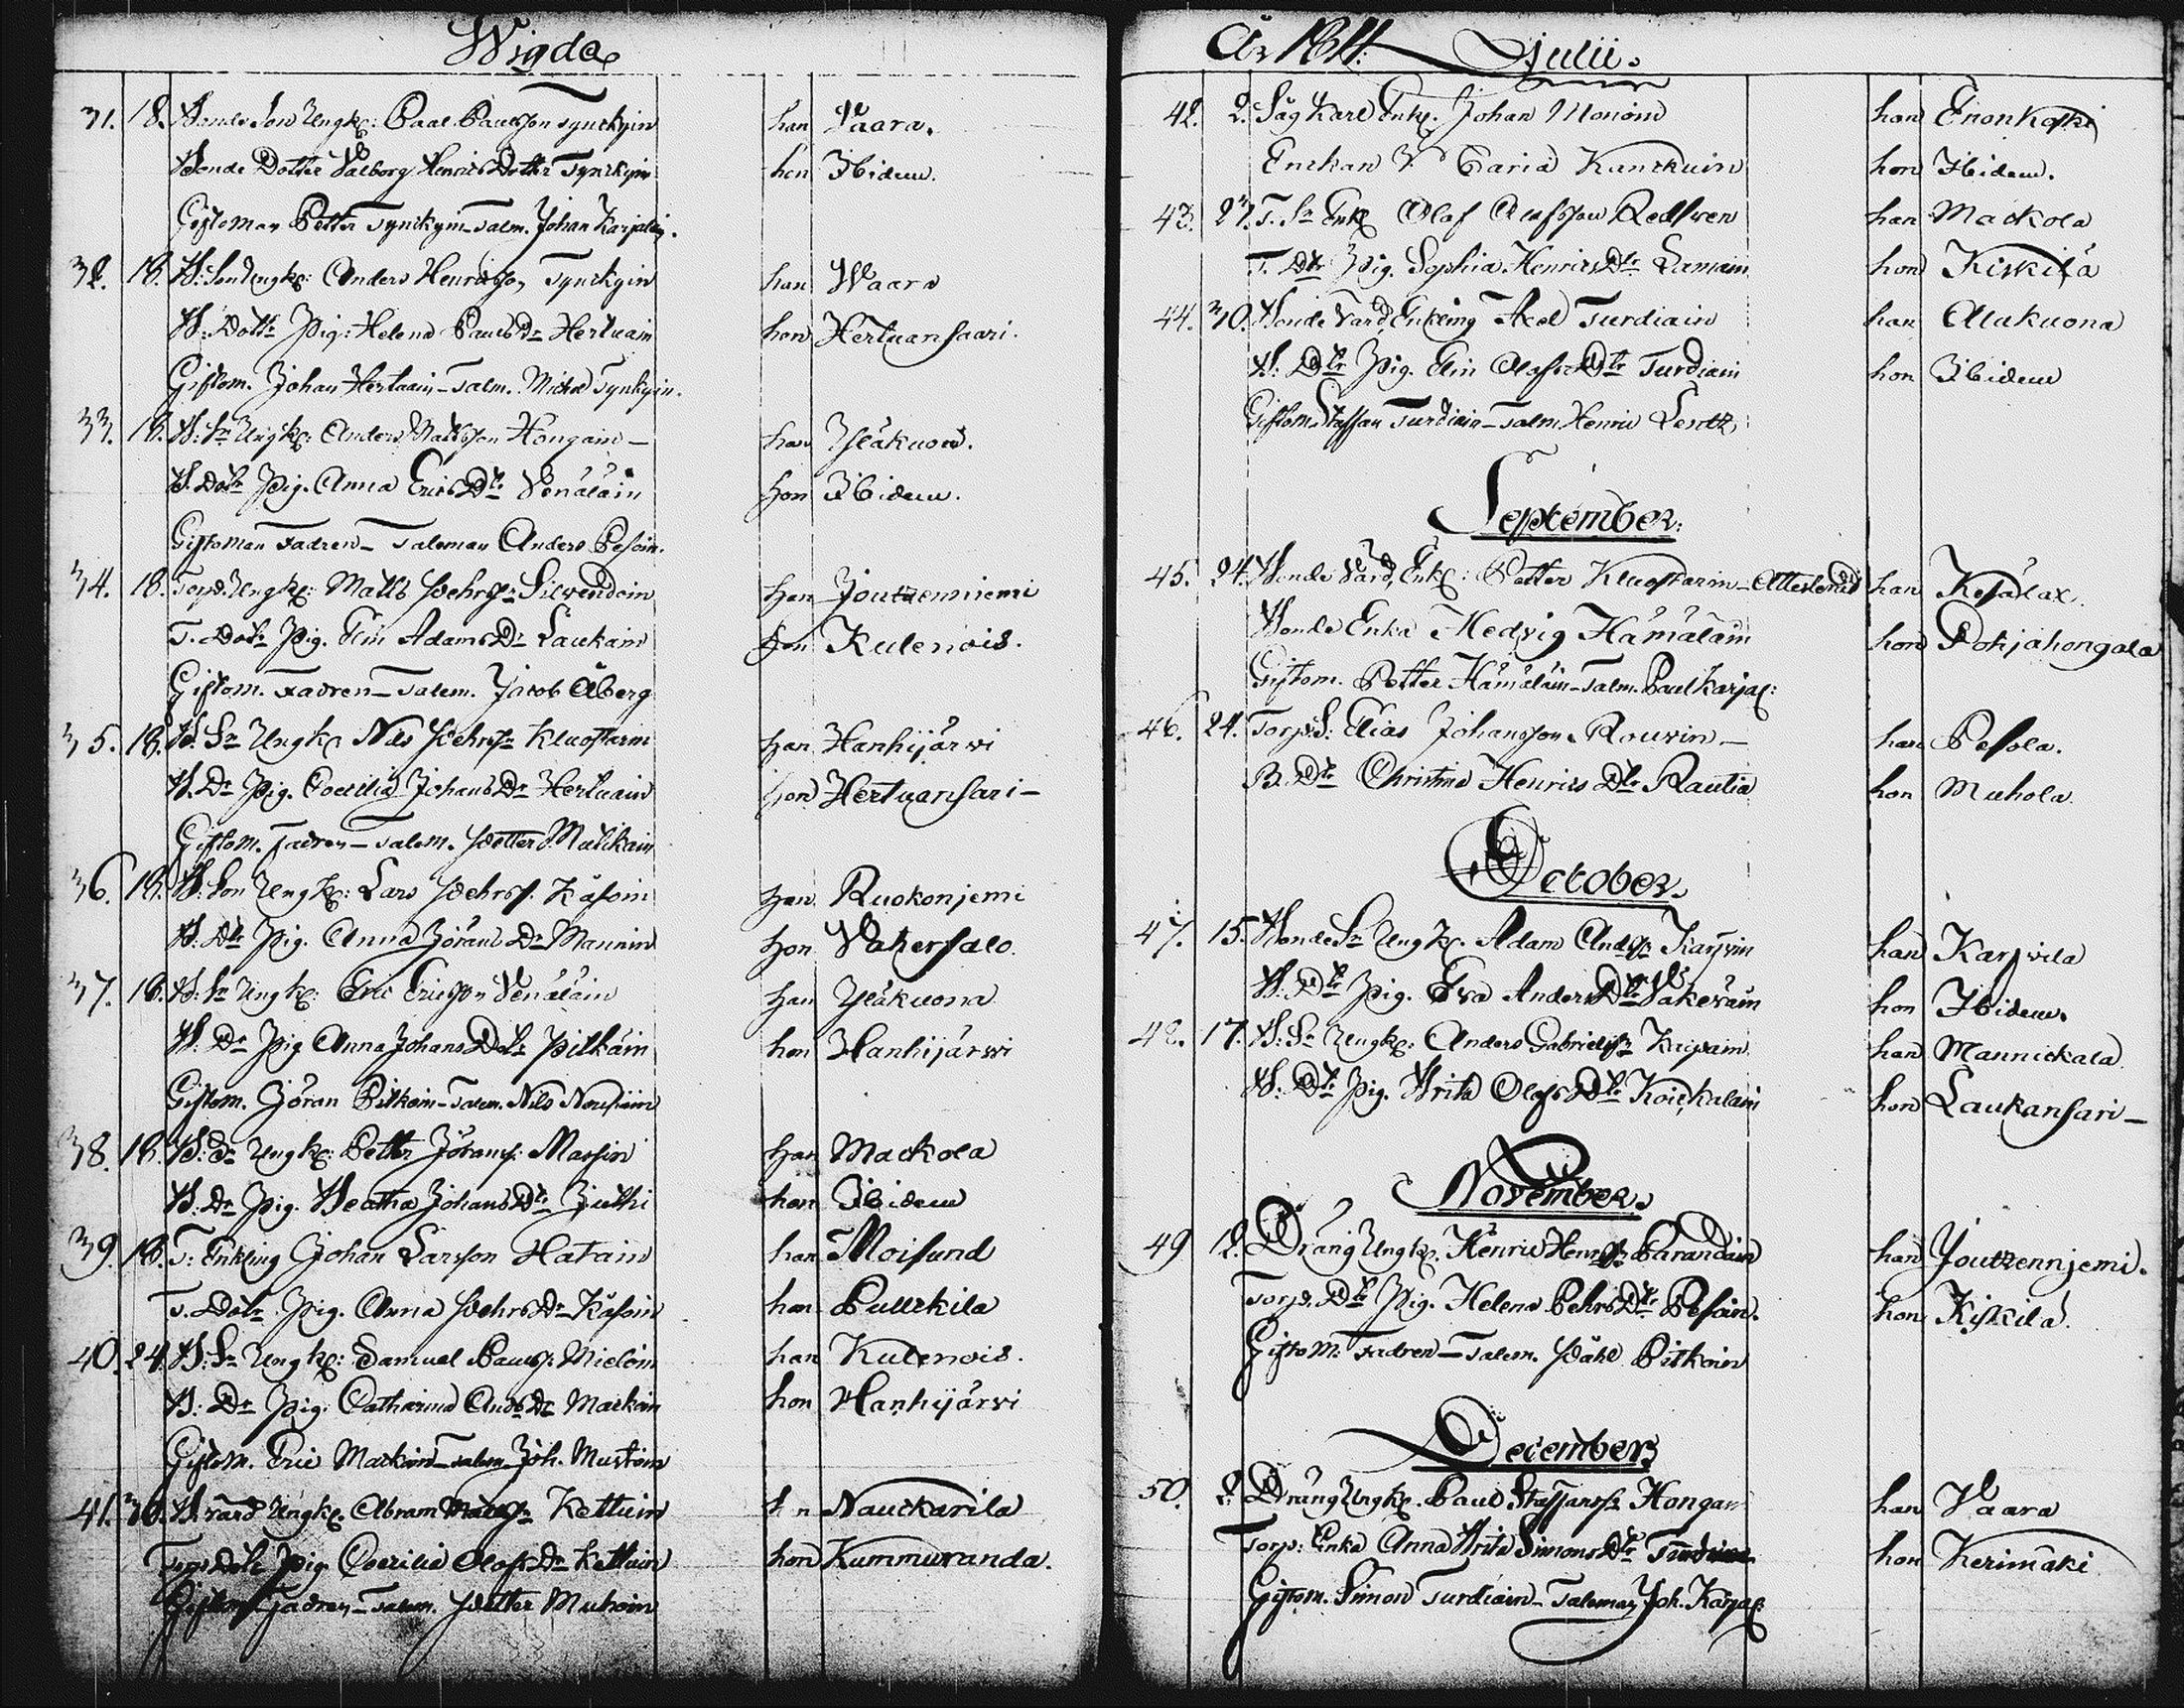 Wigda
31. 18. Bonde Son Ungk: Paal Paulsson Tynckyin han Vaara.
Bonde Dotter Valborg Henrics Dotter Tynckyin hon Ibidem.
Giftoman Petter Tynckyin – Talm. Johan Karjalin.
32. 18. B: Son Ungk: Anders Henricsson Tynckyin han Waara
B: Dottr Pig: Helena Pauls Dr Hertuain hon Hertuansaari.
Giftom. Johan Hertuain – Talm. Michel Tynkyin.
33. 18. B: Sn Ungk: Anders Mattsson Hongain – han Yläkuona.
B. Dotr Pig. Anna Erics Dtr Venäläin hon Ibidem.
Giftoman Fadren – Taleman Anders Pesoin.
34. 18. Torp. Ungk: Matts Pehrss: Silvendoin han Joutzenniemi
T. Dotr Pig. Elin Adams Dr Laukain hon Kulenois.
Giftom. Fadren – Talem. Jacob Åberg
35. 18. B. Sn Ungk: Nils Pehrss Kluostarin han Hanhijärvi
B. Dr Pig. Coecilia Johans Dr Hertuain hon Hertuansari –
Giftom. Fadren – Talem. Petter Malikain
36. 18. B: Son Ungk: Lars Pehrss. Käsoin han Ruokonjemi
B: Dtr Pig. Anna Jörans Dr Mannin hon Vahersalo.
37. 18. B: Sn Ungk: Eric Ericsson Venäläin han Yläkuona
B: Dr Pig Anna Johans Dotr Pitkäin hon Hanhijärvi
Giftom. Jöran Pitkain – Talem. Nils Nousiain
38. 18. B: Sn Ungk: Petter Jöranss: Massin han Mackola
B: Dr Pig. Beatha Johans Dtr Juthi hon Ibidem
39. 18. T: Enkling Johan Larsson Hatain han Moisund
T. Dotr Pig. Anna Pehrs Dr Käsoin hon Pulckila
40. 24. B: Sn Ungk: Samuel Paulss: Mieloin han Kulenois.
B: Dr Pig: Catharina Ands Dr Mackoin hon Hanhijärvi
Giftom. Eric Mackoin – Talem Joh. Mustoin
41. 30. B. värd Ungk. Abram Mattss Kettuin h n Nauckarila
Torp Dotr Pig Coecilia Olofs Dr Kettuin hon Kummuranda.
Giftom Fadren – Talem. Petter Muhoin
År 1814. Julii.
42. 2. Såg Karl Enkl. Johan Monoin han Enonkoski
Enckan Caria Kanckuin hon Ibidem.
43. 27. T. Sn Enkl Olof Olofsson Redsven han Mackola
T. Dtr Pig. Sophia Henrics Dtr Lamain hon Kiskilä
44. 30. Bonde Värd, Enkling Axel Turdiain han Alakuona
B: Dtr Pig. Elin Olofs Dtr Turdiain hon Ibidem
Giftom. Staffan Turdiain – Talm. Henric Lentz
September.
45. 24. Bonde Värd, Enkl: Petter Kluostarin – Attesterad han Kesälax.
Bonde Enka Hedvig Hämäläin hon Pohjahongala
Giftom. Petter Hämäläin – Talm. Paul Karjal:
46. 24. Torp. S: Elias Johansson Rouvin – han Pesola.
B. Dtr Christina Henrics Dtr Rautia hon Muhola
October.
47. 15. Bonde Sn Ungk. Adam Anderss Karvin han Karvila
B: Dtr Pig. Eva Anders Dtr Väkeväin hon Ibidem.
48. 17. B: Sn Ungk: Anders Gabrielss Kaipain han Mannickala
B: Dtr Pig. Brita Olofs Dtr Koickalain hon Laukansari –
November.
49 12. Dräng Ungk. Henric Henricss Parandain han Joutzennjemi.
Torp. Dtr Pig. Helena Pehrs Dtr Pesoin. hon Kiskilä.
Giftom. Fadren – Talem. Påhl Pitkoin
December
50. 2. Dräng Ungk. Paul Staffanss Hongain han Vaara
Torp: Enka Anna Brita Simons Dtr Turdiain hon Kerimäki
Giftom. Simon Turdiain – Taleman Joh. Karjal: